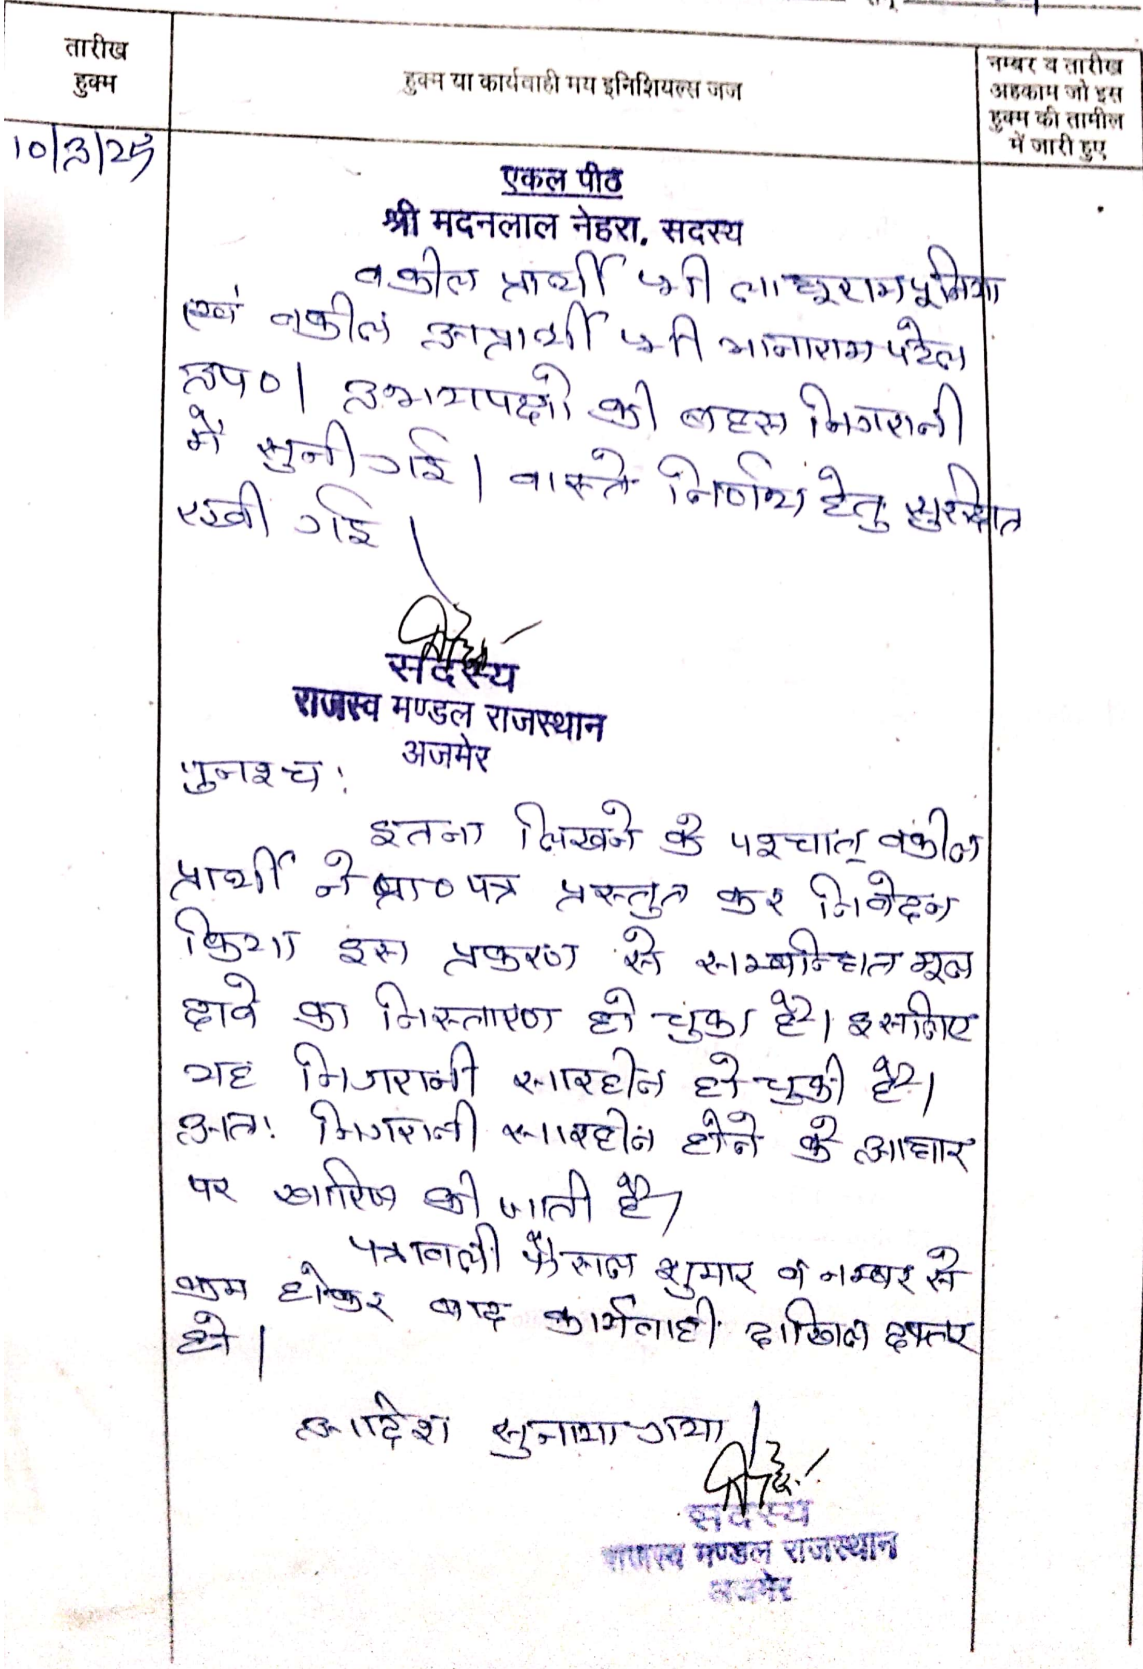 तारीख
हुक्म
हुक्म या कार्यवाही मय इनिशियल्स जज
नम्बर व तारीख
अहकाम जो इस
हुक्म की तामील
में जारी हुए
10/3/25
एकल पीठ
श्री मदनलाल नेहरा, सदस्य
वकील प्रार्थी श्री
एवं वकील अप्रार्थी श्री भानाराम पटेल
उप०। उभयपक्षो की बहस निगरानी
में सुनी गई। वास्ते निर्णय हेतु सुरक्षित
रखी गई।
सदस्य
राजस्व मण्डल राजस्थान
अजमेर
पुनश्च:
इतना लिखने के पश्चात् वकील
प्रार्थी ने प्रा०पत्र प्रस्तुत कर निवेदन
किया इस प्रकरण से सम्बन्धित मूल
दावे का निस्तारण हो चुका है। इसलिए
यह निगरानी सारहीन हो चुकी है।
अतः निगरानी सारहीन होने के आधार
पर खारिज की जाती है।
पत्रावली फैसल शुमार व नम्बर से
कम होकर बाद कार्यवाही दाखिल दफ्तर
हो।
आदेश सुनाया गया।
सदस्य
राजस्व मण्डल राजस्थान
अजमेर